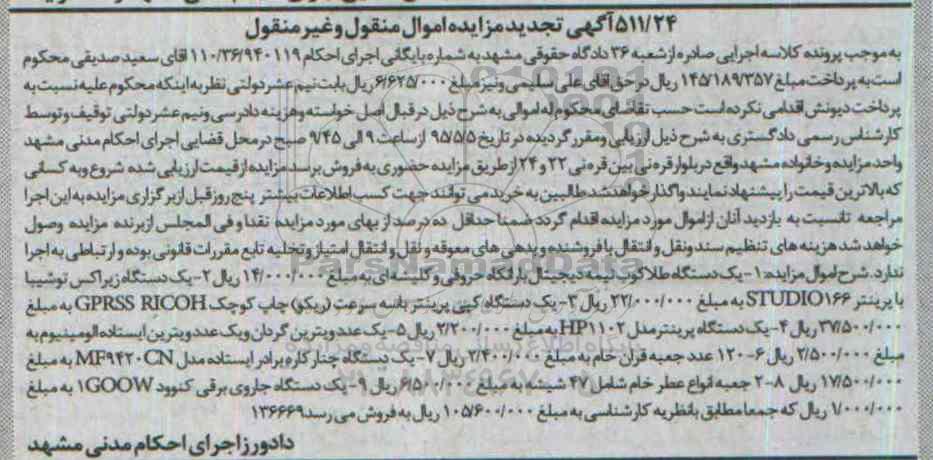 ۵۱۱/۲۴ آگهی تجدید مزایده اموال منقول و غیر منقول
به موجب پرونده کلاسه اجرایی صادره از شعبه ۳۶ دادگاه حقوقی مشهد به شماره بایگانی اجرای احکام ۱۱۰/۳۶/۹۴۰۱۱۹ اقای سعید صدیقی محکوم
است به پرداخت مبلغ ۱۴۵/۱۸۹/۳۵۷ ریال در حق اقای علی سلیمی و نیز مبلغ ۶/۶۲۵/۰۰۰ ریال بابت نیم عشر دولتی نظر به اینکه محکوم علیه نسبت به
پرداخت دیونش اقدامی نکرده است حسب تقاضای محکوم له اموالی به شرح ذیل در قبال اصل خواسته و هزینه دادرسی و نیم عشر دولتی توقیف و توسط
کارشناس رسمی دادگستری به شرح ذیل ارزیابی و مقرر گردیده در تاریخ ۹۵/۵/۵ از ساعت ۹ الی ۹/۴۵ صبح در محل قضایی اجرای احکام مدنی مشهد
واحد مزایده و خانواده مشهد واقع در بلوار قره نی بین قره نی ۲۲ و ۲۴ از طریق مزایده حضوری به فروش برسد مزایده از قیمت ارزیابی شده شروع و به کسانی
که بالاترین قیمت را پیشنهاد نمایند واگذار خواهد شد طالبین به خرید می توانند جهت کسب اطلاعات بیشتر پنج روز قبل از برگزاری مزایده به این اجرا
مراجعه تا نسبت به بازدید آنان از اموال مورد مزایده اقدام گردد ضمنا حداقل ده درصد از بهای مورد مزایده نقدا و فی المجلس از برنده مزایده وصول
خواهد شد هزینه های تنظیم سند و نقل و انتقال با فروشنده و بدهی های معوقه و نقل و انتقال امتیاز و تخلیه تابع مقررات قانونی بوده و ارتباطی به اجرا
ندارد. شرح اموال مزایده: ۱- یک دستگاه طلاکوب نیمه دیجیتال با راتکاه حروفی و کلیسه ای به مبلغ ۱۴/۰۰۰/۰۰۰ ریال ۲- یک دستگاه زیراکس توشیبا
با پرینتر STUDIO۱۶۶ به مبلغ ۲۲/۰۰۰/۰۰۰ ریال ۳- یک دستگاه کپی پرینتر باسه سرعت (ریکو) چاپ کوچک GPRSS RICOH به مبلغ
۳۷/۵۰۰/۰۰۰ ریال ۴- یک دستگاه پرینتر مدل HP۱۱۰۲ به مبلغ ۲/۲۰۰/۰۰۰ ریال ۵- یک عدد ویترین گردان و یک عدد ویترین ایستاده الومینیوم به
مبلغ ۲/۵۰۰/۰۰۰ ریال ۶- ۱۲۰ عدد جعبه قران خام به مبلغ ۲/۴۰۰/۰۰۰ ریال ۷- یک دستگاه چنار کاره برادر ایستاده مدل MF۹۴۲۰CN به مبلغ
۱۷/۵۰۰/۰۰۰ ریال ۸- ۲ جعبه انواع عطر خام شامل ۴۷ شیشه به مبلغ ۶/۵۰۰/۰۰۰ ریال ۹- یک دستگاه جاروی برقی کنوود ۱GOOW به مبلغ
۱/۰۰۰/۰۰۰ ریال که جمعا مطابق با نظریه کارشناسی به مبلغ ۱۰۵/۶۰۰/۰۰۰ ریال به فروش می رسد ۱۳۶۶۶۹
دادورز اجرای احکام مدنی مشهد
ParsNamadData